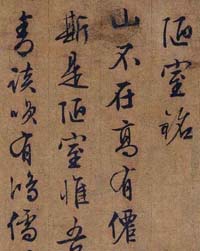 陋室銘
山不在高有僊
斯是陋室惟吾
青談咲有鴻儒